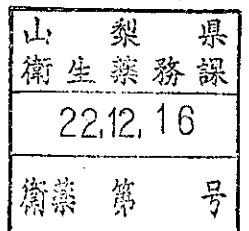 山梨県
衛生薬務課
22.12.16
衛薬第号